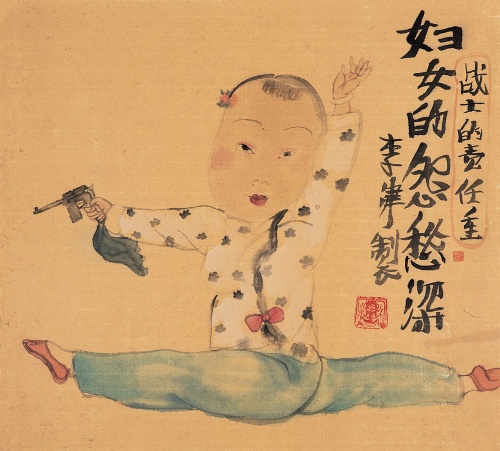 战士的责任重
妇女的怨愁
李
制